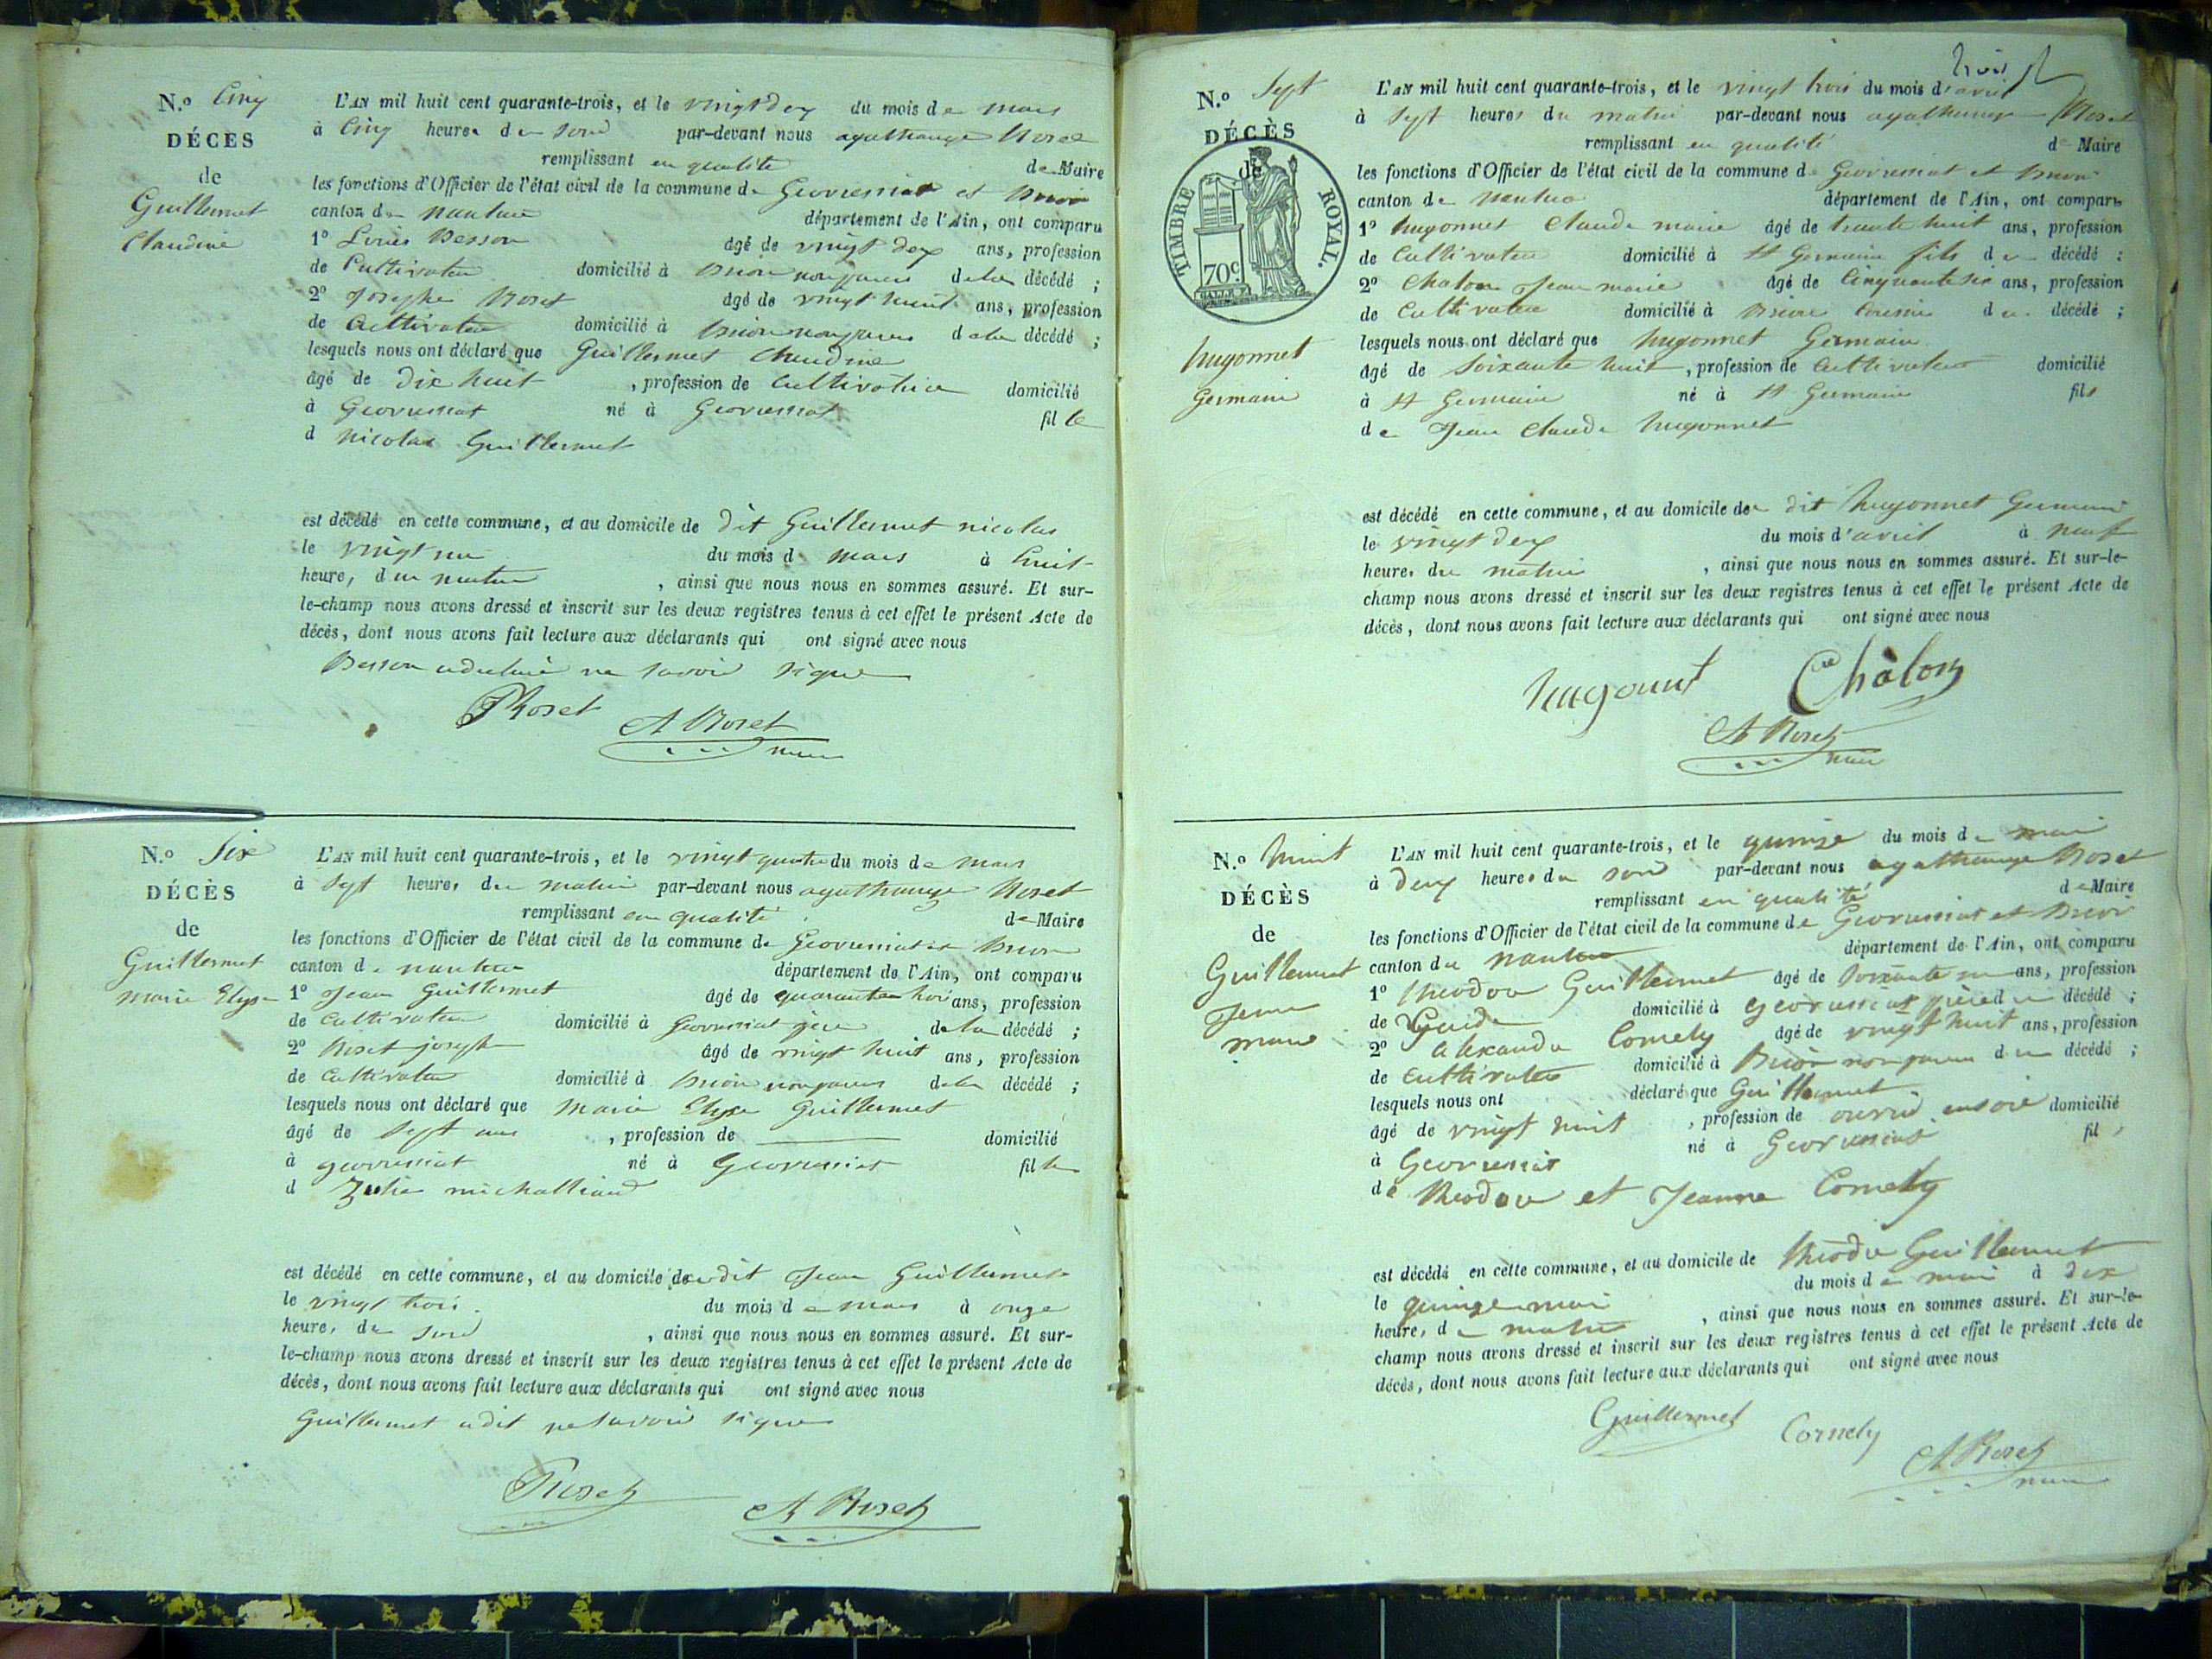 N.º Cinq
DÉCÈS
de
Guillermet
Claudine
L'AN mil huit cent quarante-trois, et le vingt deux du mois de mars
à Cinq heures du soir par-devant nous agathange Roset
remplissant en qualité de Maire
les fonctions d'Officier de l'état civil de la commune de Geovressiat et Brion
canton de nantua département de l'Ain, ont comparu
1º Louis Besson âgé de vingt deux ans, profession
de Cultivateur domicilié à Brion non parens de la décédé ;
2º Josephe Roset âgé de vingt huit ans, profession
de Cultivateur domicilié à Brion non parens de la décédé ;
lesquels nous ont déclaré que Guillermet Claudine
âgé de dix huit , profession de Cultivatrice domicilié
à Geovressiat né à Geovressiat fille
d nicolas Guillermet
est décédé en cette commune, et au domicile de dit Guillermet nicolas
le vingt un du mois de mars à huit
heure, du matin , ainsi que nous nous en sommes assuré. Et sur-
le-champ nous avons dressé et inscrit sur les deux registres tenus à cet effet le présent Acte de
décès, dont nous avons fait lecture aux déclarants qui ont signé avec nous
Besson a declaré ne savoir signe
Roset
A Roset
maire
N.º Six
DÉCÈS
de
Guillermet
marie Elyse
L'AN mil huit cent quarante-trois, et le vingt quatre du mois de mars
à Sept heures du matin par-devant nous agathange Roset
remplissant en qualité de Maire
les fonctions d'Officier de l'état civil de la commune de Geovressiat et Brion
canton de nantua département de l'Ain, ont comparu
1º Jean Guillermet âgé de quarante trois ans, profession
de Cultivateur domicilié à Geovressiat père de la décédé ;
2º Roset joseph âgé de vingt huit ans, profession
de Cultivateur domicilié à Brion non parens de la décédé ;
lesquels nous ont déclaré que Marie Elyse Guillermet
âgé de Sept ans , profession de domicilié
à geovressiat né à Geovressiat fille
d Julie michalliaud
est décédé en cette commune, et au domicile du dit Jean Guillermet
le vingt trois du mois de mars à onze
heure, du soir , ainsi que nous nous en sommes assuré. Et sur-
le-champ nous avons dressé et inscrit sur les deux registres tenus à cet effet le présent Acte de
décès, dont nous avons fait lecture aux déclarants qui ont signé avec nous
Guillermet a dit ne savoir signe
Roset
A Roset
trois
N.º Sept
DÉCÈS
de
TIMBRE ROYAL.
70c
hugonnet
Germain
L'AN mil huit cent quarante-trois, et le vingt trois du mois d'avril
à Sept heures du matin par-devant nous agathange Roset
remplissant en qualité de Maire
les fonctions d'Officier de l'état civil de la commune de Geovressiat et Brion
canton de Nantua département de l'Ain, ont comparu
1º hugonnet Claude marie âgé de trante huit ans, profession
de Cultivateur domicilié à St Germain fils du décédé :
2º Chalon Jean marie âgé de Cinquante six ans, profession
de Cultivateur domicilié à Brion Cousin du décédé ;
lesquels nous ont déclaré que hugonnet Germain
âgé de Soixante huit , profession de Cultivateur domicilié
à St Germain né à St Germain fils
de Jean Claude hugonnet
est décédé en cette commune, et au domicile de dit hugonnet Germain
le vingt deux du mois d'avril à neuf
heures du matin , ainsi que nous nous en sommes assuré. Et sur-le-
champ nous avons dressé et inscrit sur les deux registres tenus à cet effet le présent Acte de
décès, dont nous avons fait lecture aux déclarants qui ont signé avec nous
hugonnet
Châlon
A Roset
maire
N.º huit
DÉCÈS
de
Guillermet
Jean
marie
L'AN mil huit cent quarante-trois, et le quinze du mois de mai
à deux heures du soir par-devant nous agathange Roset
remplissant en qualité de Maire
les fonctions d'Officier de l'état civil de la commune de Geovressiat et Brion
canton de Nantua département de l'Ain, ont comparu
1º théodore Guillermet âgé de Soixante un ans, profession
de Garde domicilié à Geovressiat père du décédé ;
2º Alexandre Cornely âgé de vingt huit ans, profession
de Cultivateur domicilié à Brion non parens du décédé ;
lesquels nous ont déclaré que Guillermet
âgé de vingt huit , profession de ouvrié en soie domicilié
à Geovressiat né à Geovressiat fils
de théodore et Jeanne Cornely
est décédé en cette commune, et au domicile de théodore Guillermet
le quinze mai du mois de mai à dix
heure, de matin , ainsi que nous nous en sommes assuré. Et sur-le-
champ nous avons dressé et inscrit sur les deux registres tenus à cet effet le présent Acte de
décès, dont nous avons fait lecture aux déclarants qui ont signé avec nous
Guillermet
Cornely
A Roset
maire